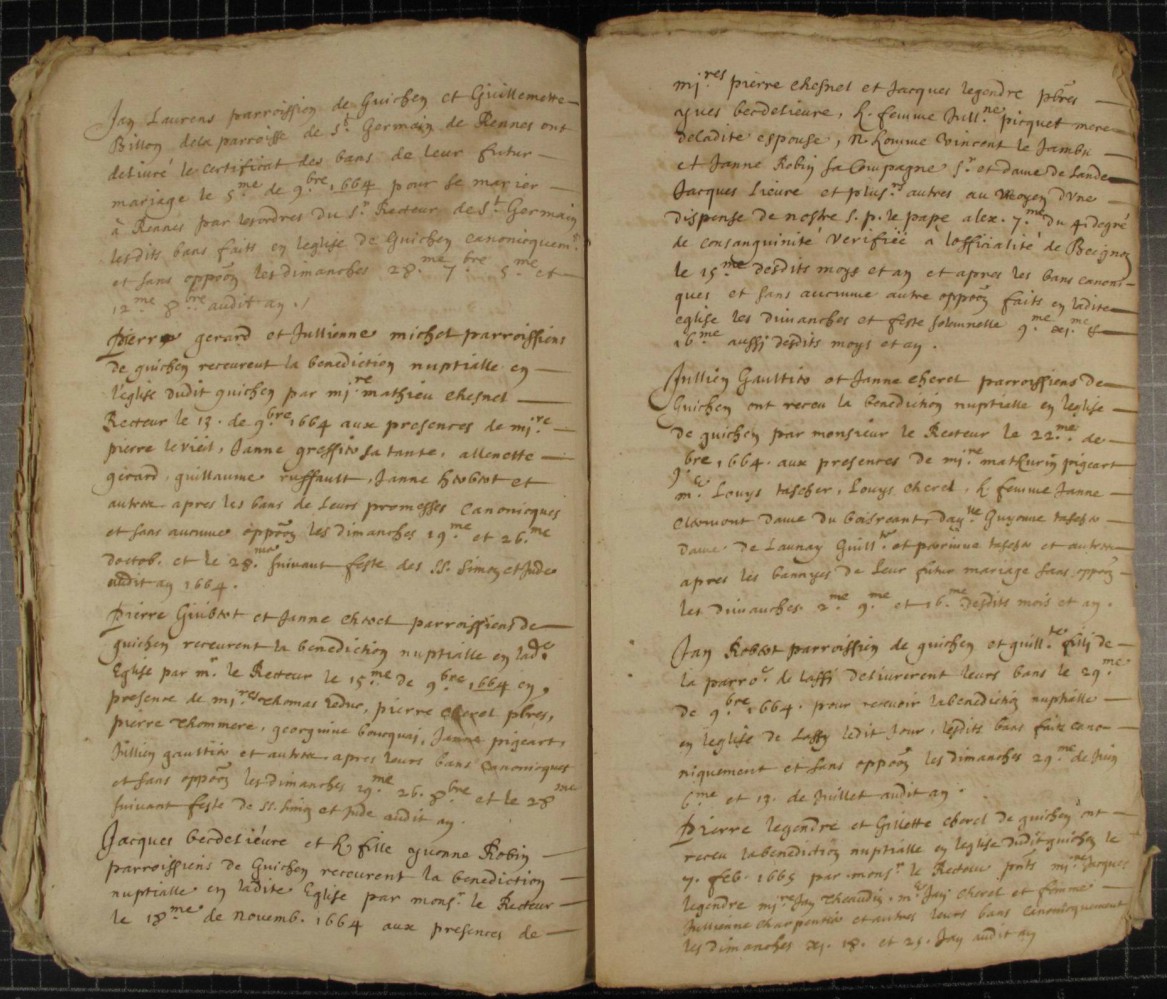 Jan Laurens parroissien de Guichen et Guillemette
Billon dela parroisse de St Germain de Rennes ont
delivré le certificat des bans de leur futur
mariage le 5me de 9bre 1664 pour se marier
à Rennes par les ordres du Sr Recteur de St Germain
lesdits bans faits en leglise de Guichen canonicquemt
et sans oppoon les dimanches 28me 7bre 5me et
12me 8bre audit an.
Pierre gerard et Jullienne michel parroissiens
de guichen receurent la benediction nuptialle en
l'eglise dudit guichen par mire mathieu chesnel
Recteur le 13. de 9bre 1664 aux presences de mire
pierre levieil, Janne greffier sa tante, allenette
gerard, guillaume ruffault, Janne Herbert et
autres apres les bans de leurs promesses canonicques
et sans aucunne oppoon les dimanches 19me et 26me
doctob. et le 28me suivant feste des SS. Simon et Jude
audit an 1664.
Pierre Guibert et Janne cherel parroissiens de
guichen receurent la benediction nuptialle en lade
Eglise par mr le Recteur le 15me de 9bre 1664 en
presence de mires Thomas leduc, pierre cherel pbres,
pierre Thommere, georginne boucquai, Janne pigeart,
Jullien gaultier et autres apres leurs bans canonicques
et sans oppoon les dimanches 19me 26. 8bre et le 28me
suivant feste de SS. simon et Jude audit an.
Jacques becdelièvre et h. fille yvonne Robin
parroissiens de Guichen receurent la benediction
nuptialle en ladite Eglise par monsr le Recteur
le 18me de novemb. 1664 aux presences de
mires pierre chesnel et Jacques legendre pbres
yves becdelievre, h. femme Jullne picquet mere
deladite espouse, n. homme vincent le Jambu
et Janne Robin sa compagne Sr et dame de Lande
Jacques Lievre et plusrs autres au moyen dune
dispense de nostre S. p. le pape alex. 7me du 4. degré
de consanguinité verifiée a lofficialité de Beignon
le 15me desdits moys et an et apres les bans canoni-
ques et sans aucunne autre oppoon faits en ladite
eglise les dimanches et feste solennelle 9me xi.me et
16me aussi desdits moys et an.
Jullien Gaultier et Janne cherel parroissiens de
Guichen ont receu la benediction nuptialle en leglise
de guichen par monsieur le Recteur le 22me de
9bre 1664. aux presences de mire mathurin pigeart
me Louys tascher, Louys cherel, h. femme Janne
clermont dame du boisreant, dayle Guyonne tascher
dame de Launay Guillte et perrinne tascher et autres
apres les bannyes de leur futur mariage sans oppoon
les dimanches 2me 9me et 16me desdits mois et an.
Jan Robert parroissien de guichen et guillte filly de
la parroe de laffi delivrerent leurs bans le 29me
de 9bre 1664. pour recevoir la benediction nuptialle
en leglise de Laffy ledit jour, lesdits bans faits cano
niquement et sans oppoon les dimanches 29me de Juin
6me et 13. de Juillet audit an.
Pierre legendre et Gillette cherel de guichen ont
receu la benediction nuptialle en leglise dudit guichen le
7. feb. 1665 par monsr le Recteur pnts mire Jacques
legendre mire Jan Theaudin, me Jan cherel et femme
Jullienne charpentier et autres leurs bans canonicquement
les dimanches xi. 18. et 25. Jan audit an